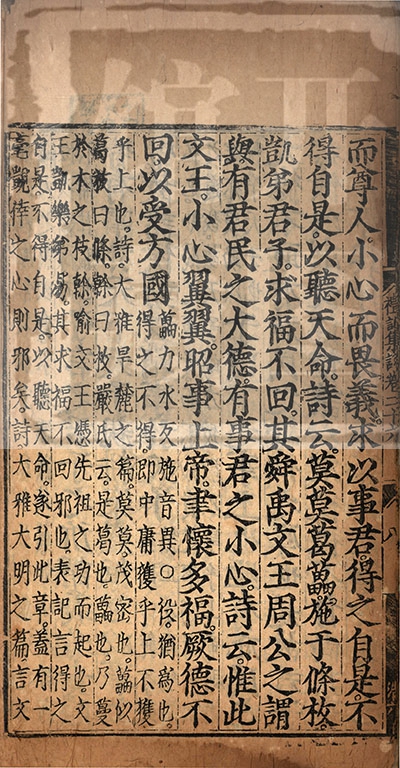 而尊人。小心而畏義。求以事君。得之自是。不
得自是。以聽天命。詩云。莫莫葛藟。施于條枚。
凱弟君子。求福不回。其舜禹文王周公之謂
與。有君民之大德。有事君之小心。詩云。惟此
文王。小心翼翼。昭事上帝。聿懷多福。厥德不
回。以受方國
藟力水反施音異○役。猶為也。
得之不得。即中庸獲乎上不獲
乎上也。詩。大雅旱麓之篇莫莫茂密也。藟似
葛。枝曰條。榦曰枚。嚴氏云。是葛也。藟也。乃蔓
於木之枝榦。喻文王憑先祖之功而起也。文
王凱樂弟易。其求福不回邪也。表記言得之
自是。不得自是。以聽天命。遂引此章。蓋有一
毫覬倖之心則邪矣。詩大雅大明之篇言文
八